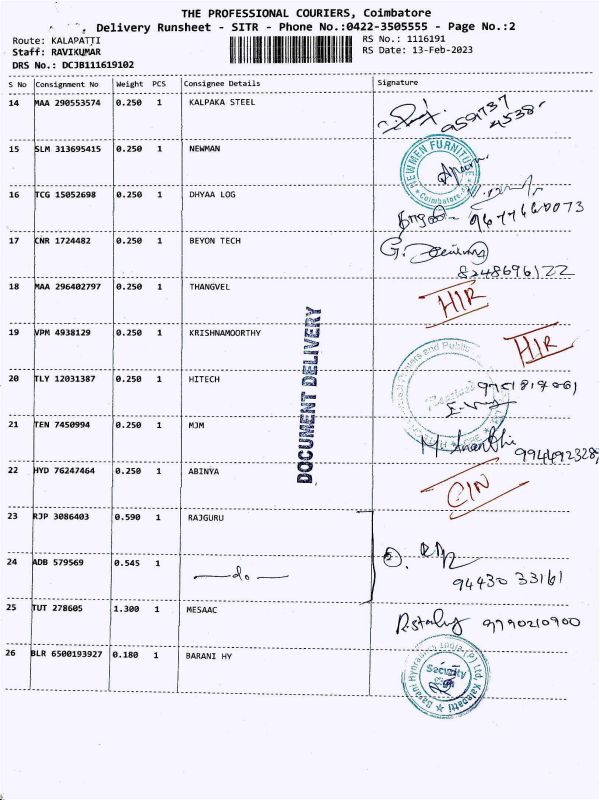 THE PROFESSIONAL COURIERS, Coimbatore
Delivery Runsheet - SITR - Phone No.:0422-3505555 - Page No.:2
Route: KALAPATTI
RS No.: 1116191
Staff: RAVIKUMAR
RS Date: 13-Feb-2023
DRS No.: DCJB111619102
S No Consignment No Weight PCS Consignee Details Signature
14 MAA 290553574 0.250 1 KALPAKA STEEL
959737
4538
15 SLM 313695415 0.250 1 NEWMAN
NEWMEN FURNITURE
Coimbatore
16 TCG 15052698 0.250 1 DHYAA LOG
9677460073
17 CNR 1724482 0.250 1 BEYON TECH
8248696122
18 MAA 296402797 0.250 1 THANGVEL
HIR
19 VPM 4938129 0.250 1 KRISHNAMOORTHY
HIR
20 TLY 12031387 0.250 1 HITECH
21 TEN 7450994 0.250 1 MJM
22 HYD 76247464 0.250 1 ABINYA
CIN
23 RJP 3086403 0.590 1 RAJGURU
24 ADB 579569 0.545 1 —do—
94430 33161
25 TUT 278605 1.300 1 MESAAC
9790210900
26 BLR 6500193927 0.180 1 BARANI HY
Barani Hydraulics India (P) Ltd, Kalapatti
Security
DOCUMENT DELIVERY